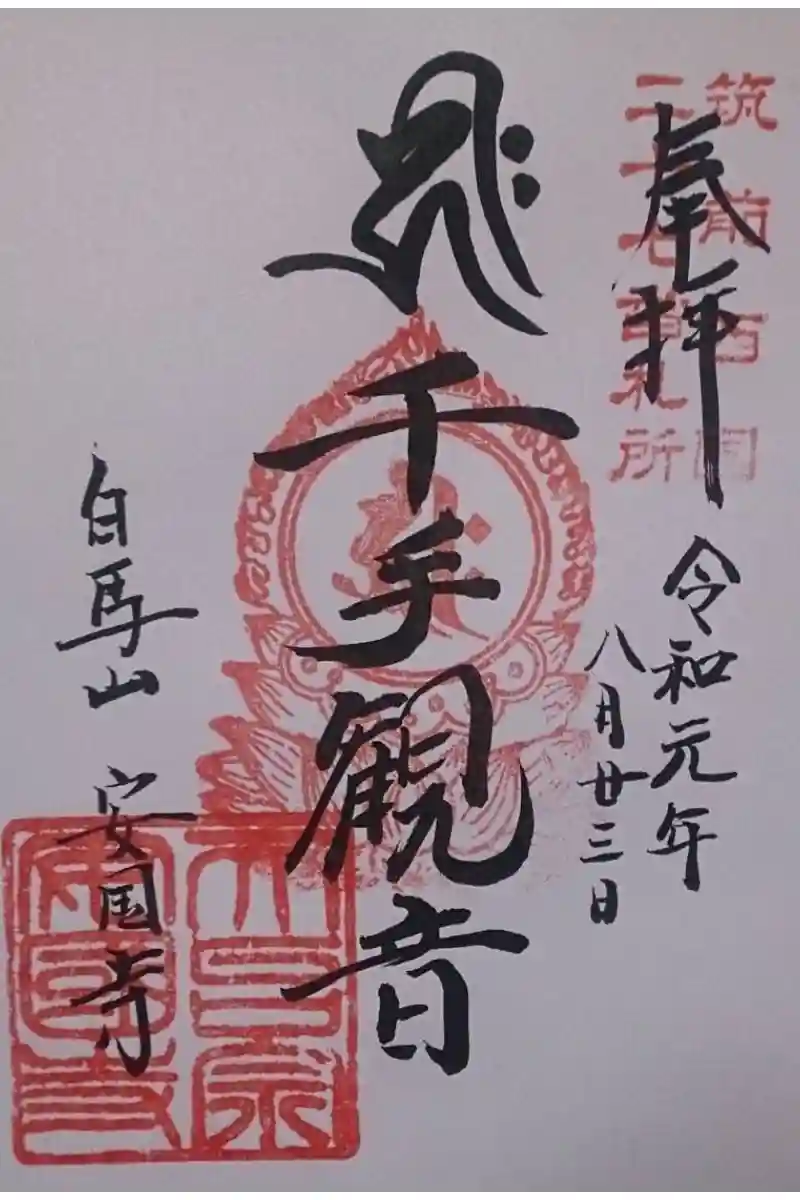 筑前西国
二十七番札所
奉拝
令和元年
八月廿三日
千手観音
白馬山 安国寺